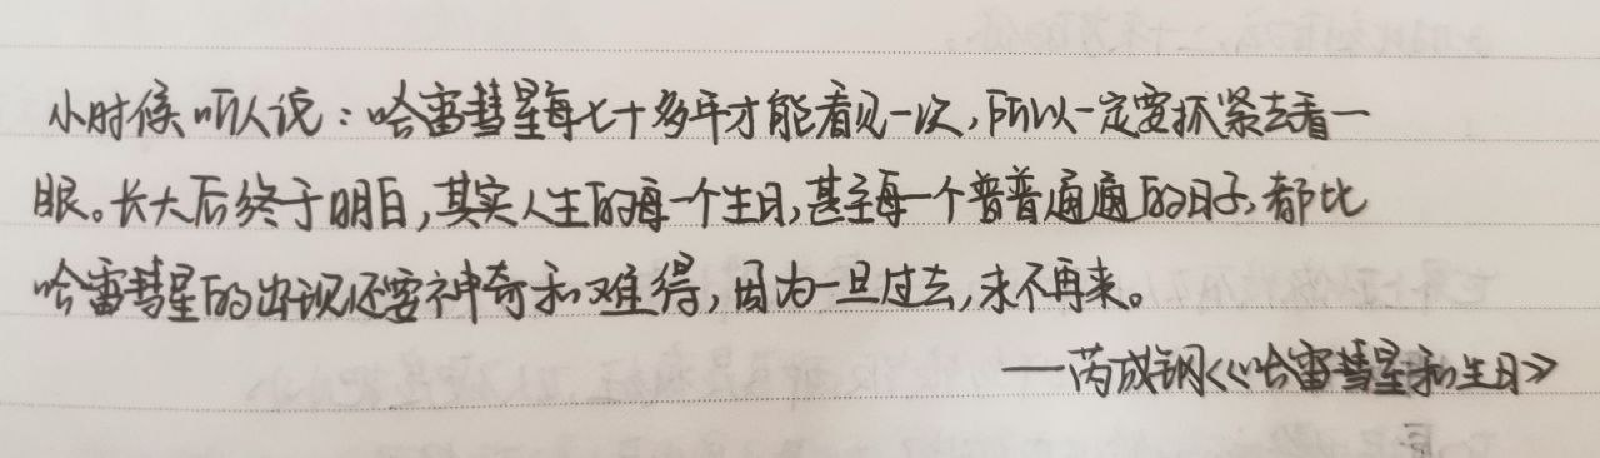 小时候听人说：哈雷彗星每七十多年才能看见一次，所以一定要抓紧去看一
眼。长大后终于明白，其实人生的每一个生日，甚至每一个普普通通的日子，都比
哈雷彗星的出现还要神奇和难得，因为一旦过去，永不再来。
——芮成钢《哈雷彗星和生日》